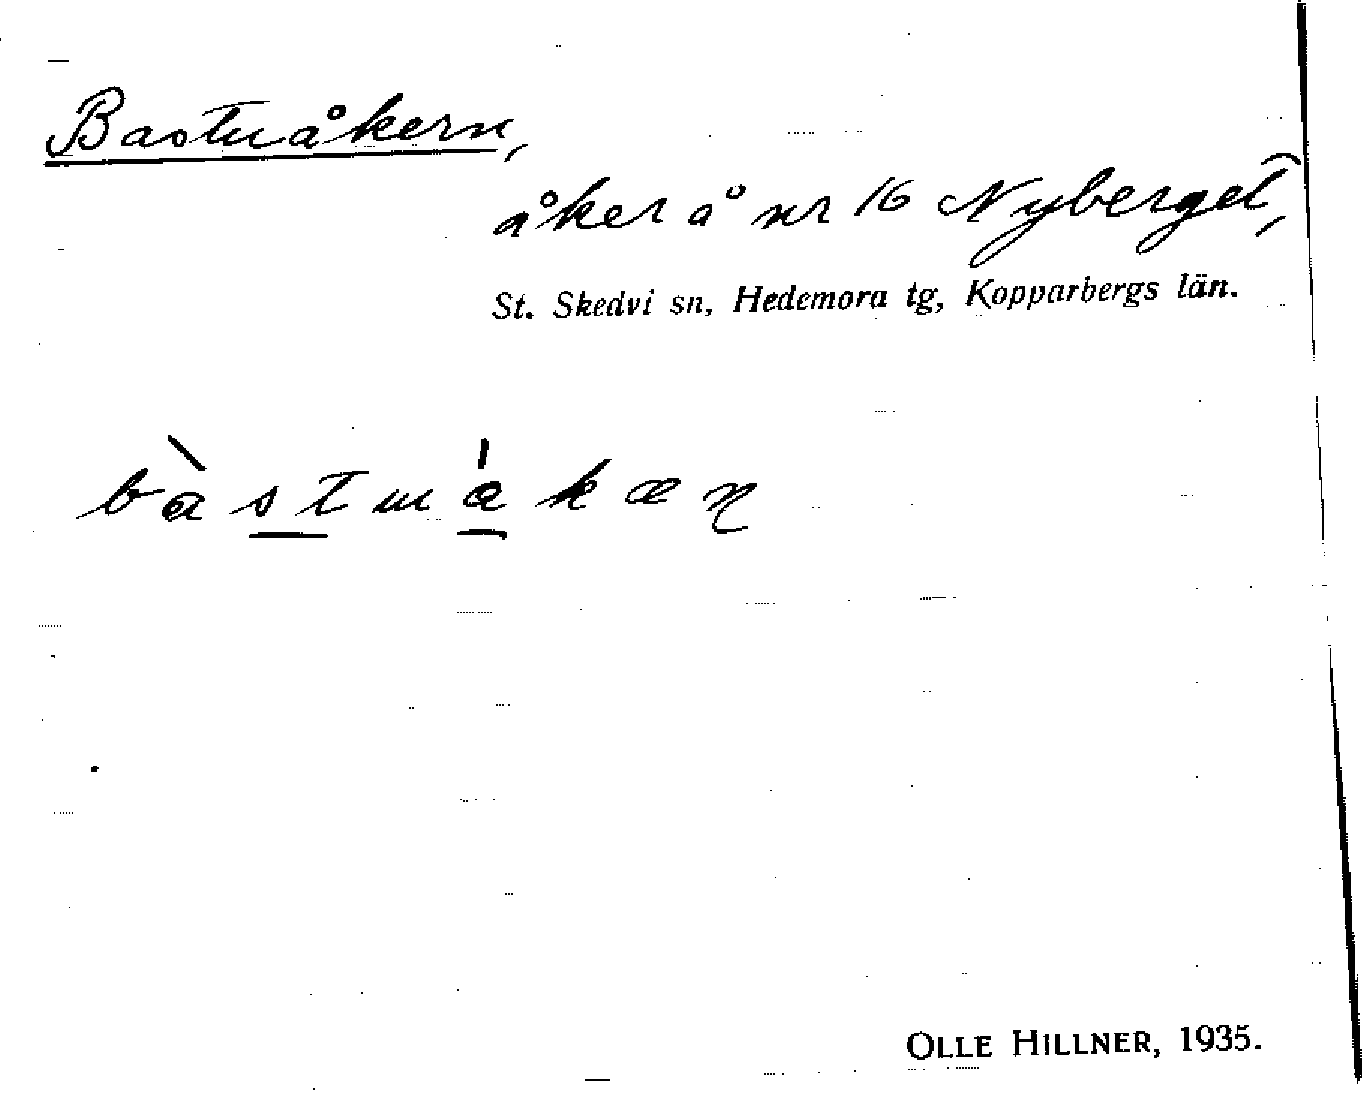 Bastuåkern,
åker å nr 16 Nyberget,
St. Skedvi sn, Hedemora tg, Kopparbergs län.
OLLE HILLNER, 1935.